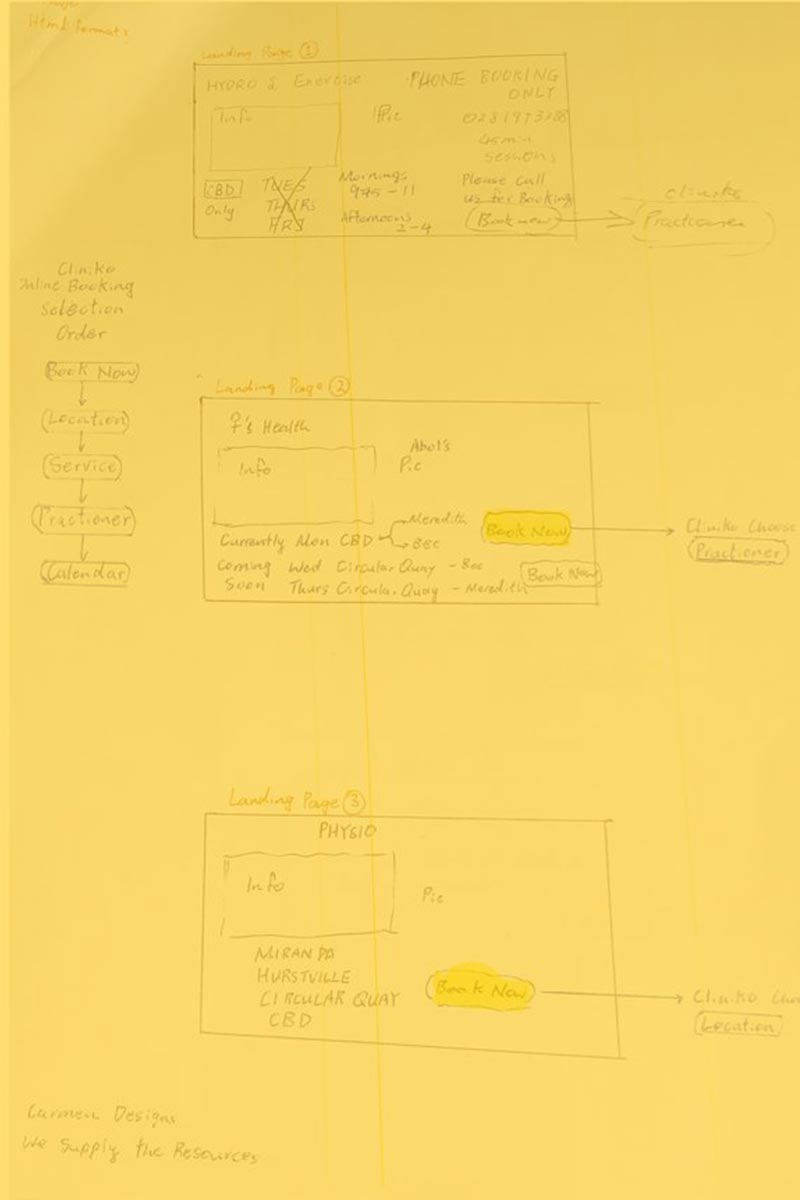 Html format:
Landing Page ①
HYDRO & Exercise
PHONE BOOKING
ONLY
Info
Pic
45min
sessions
CBD
Only
TUES
THURS
Mornings
945-11
Afternoons
2-4
Please Call
us for Booking
Book now
Cliniko
Practioner
Cliniko
Inline Booking
Selection
Order
Book Now
Location
Service
Practioner
Calendar
Landing Page ②
Health
Info
Pic
Currently Mon CBD
Meredith
Bec
Book Now
Cliniko Choose
Practioner
Coming Wed Circular Quay - Bec
Soon Thurs Circular Quay - Meredith
Book Now
Landing Page ③
PHYSIO
Info
Pic
MIRANDA
HURSTVILLE
CIRCULAR QUAY
CBD
Book Now
Cliniko
Location
Carmen Designs
We Supply the Resources